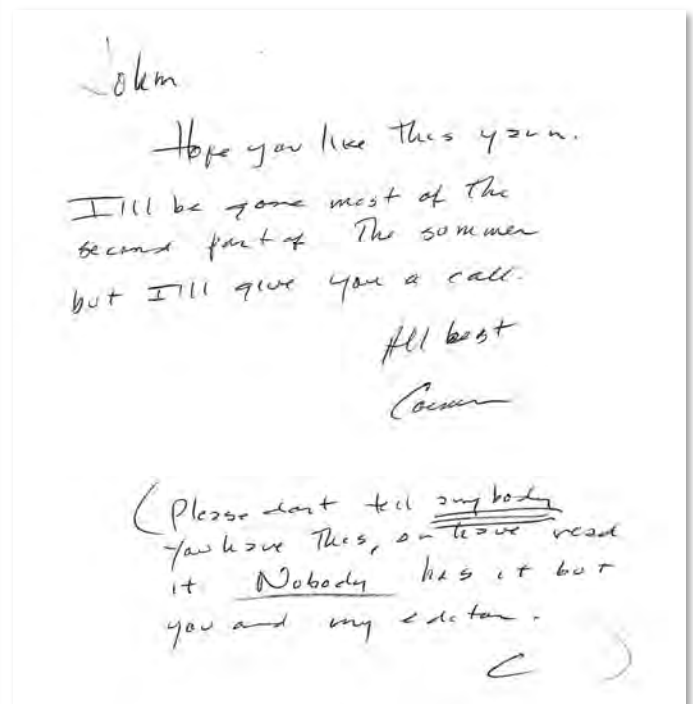 John
Hope you like this yarn.
I'll be gone most of the
second part of the summer
but I'll give you a call.
All best
Cormac
(Please dont tell anybody
you have this, or have read
it Nobody has it but
you and my editor.
C )